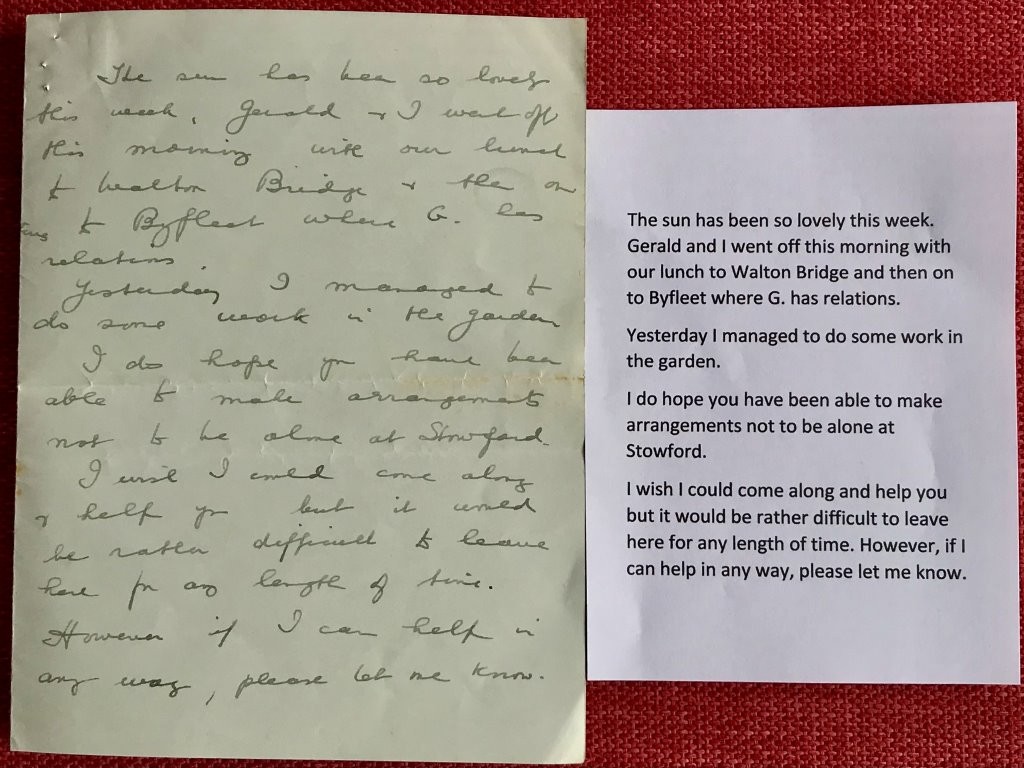 The sun has been so lovely
this week. Gerald & I went off
this morning with our lunch
to Walton Bridge & then on
to Byfleet where G. has
relations.
Yesterday I managed to
do some work in the garden
I do hope you have been
able to make arrangements
not to be alone at Stowford.
I wish I could come along
& help you but it would
be rather difficult to leave
here for any length of time.
However if I can help in
any way, please let me know.
The sun has been so lovely this week.
Gerald and I went off this morning with
our lunch to Walton Bridge and then on
to Byfleet where G. has relations.
Yesterday I managed to do some work in
the garden.
I do hope you have been able to make
arrangements not to be alone at
Stowford.
I wish I could come along and help you
but it would be rather difficult to leave
here for any length of time. However, if I
can help in any way, please let me know.